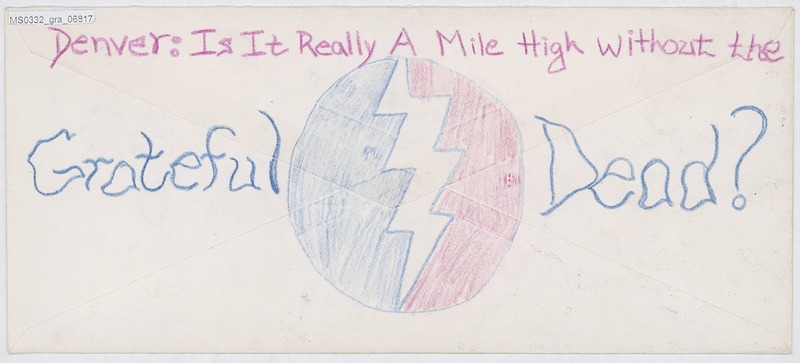 MS0332_gra_06817
Denver: Is It Really A Mile High Without the
Grateful Dead?